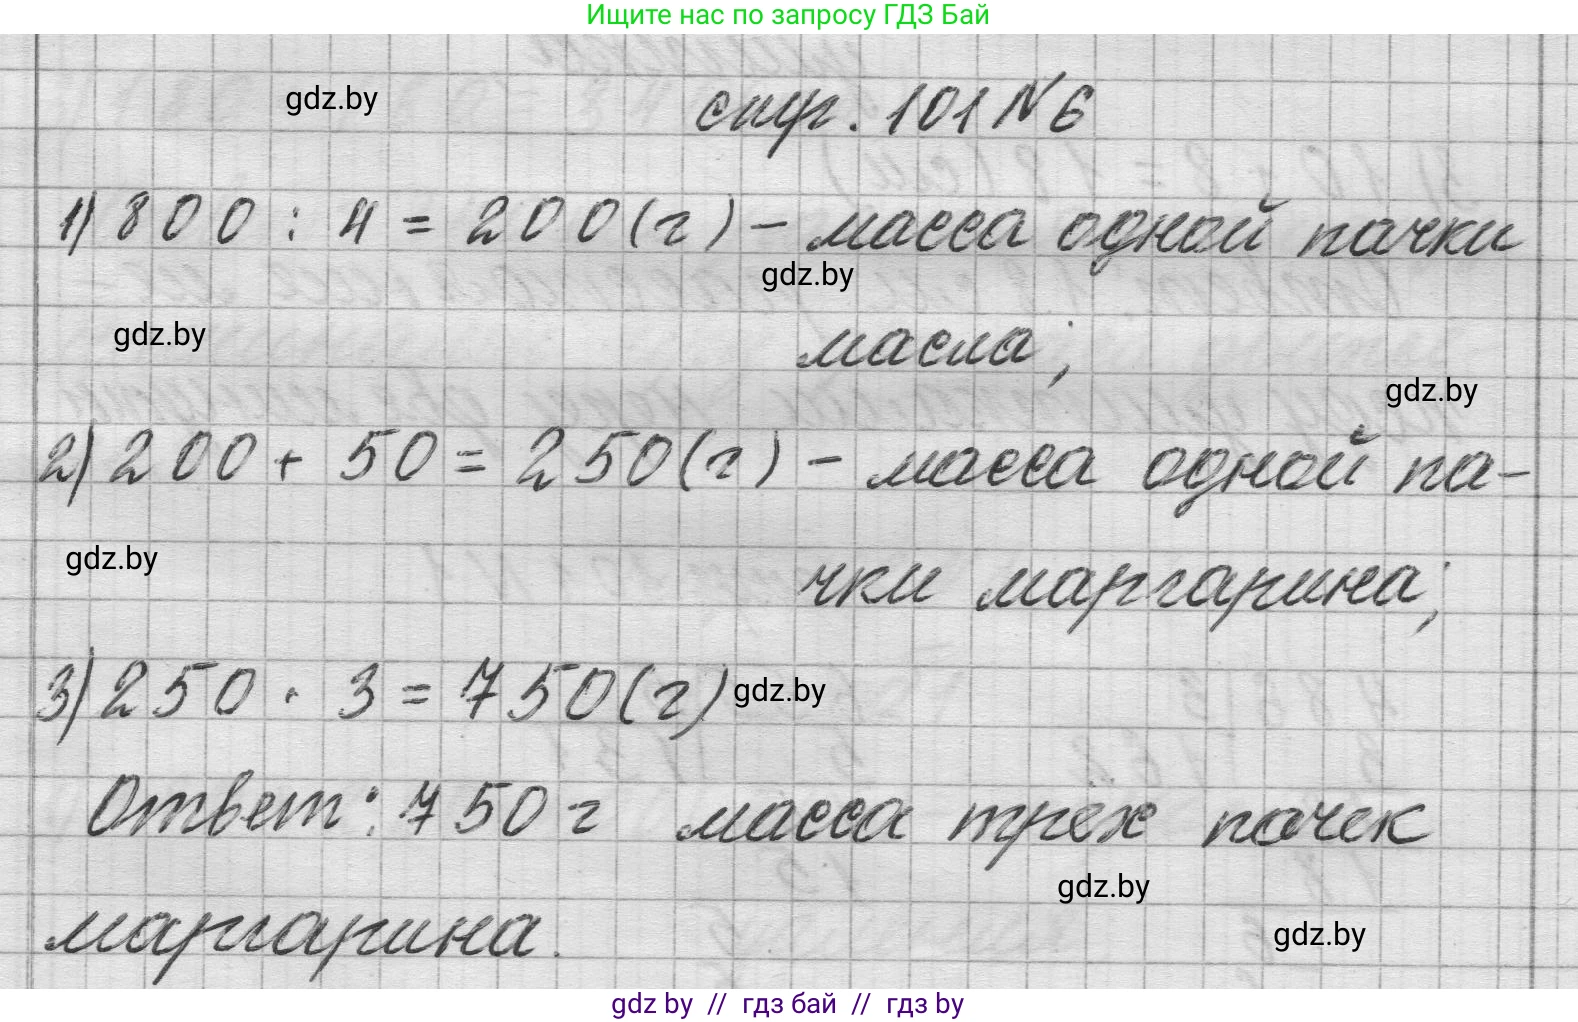 Ищите нас по запросу ГДЗ Бай
gdz.by
стр. 101 № 6
1) 800 : 4 = 200 (г) – масса одной пачки
gdz.by
gdz.by
масла;
gdz.by
2) 200 + 50 = 250 (г) – масса одной па-
gdz.by
чки маргарина;
3) 250 · 3 = 750 (г)
gdz.by
Ответ: 750 г масса трёх пачек
gdz.by
маргарина.
gdz.by
gdz by // гдз бай // гдз by